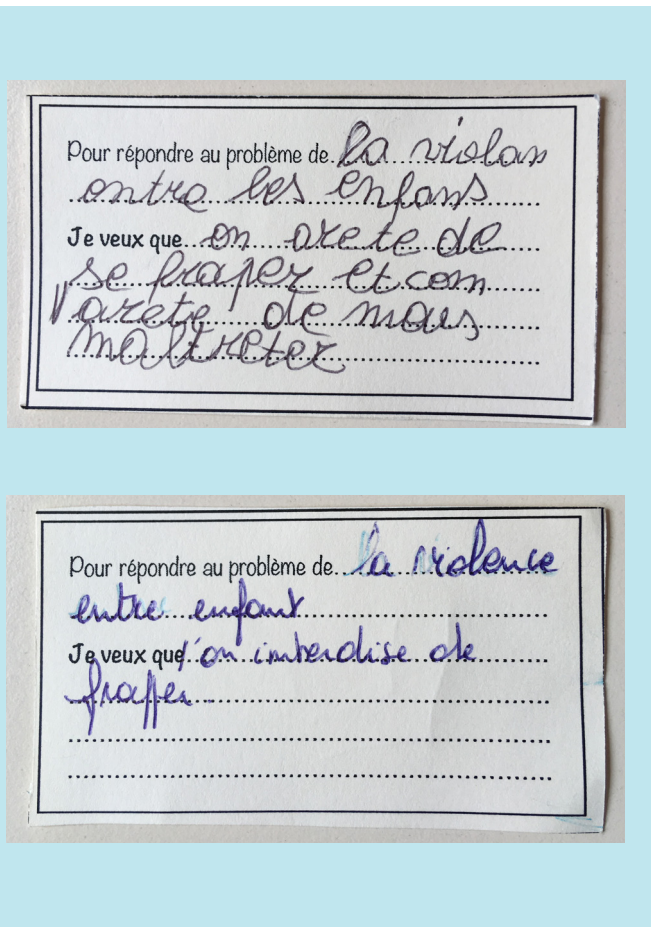 Pour répondre au problème de la violans
entre les enfans
Je veux que on arete de
se fraper et com
arete de nous
maltreter
Pour répondre au problème de la violence
entre enfant
Je veux que l'on interdise de
frapper